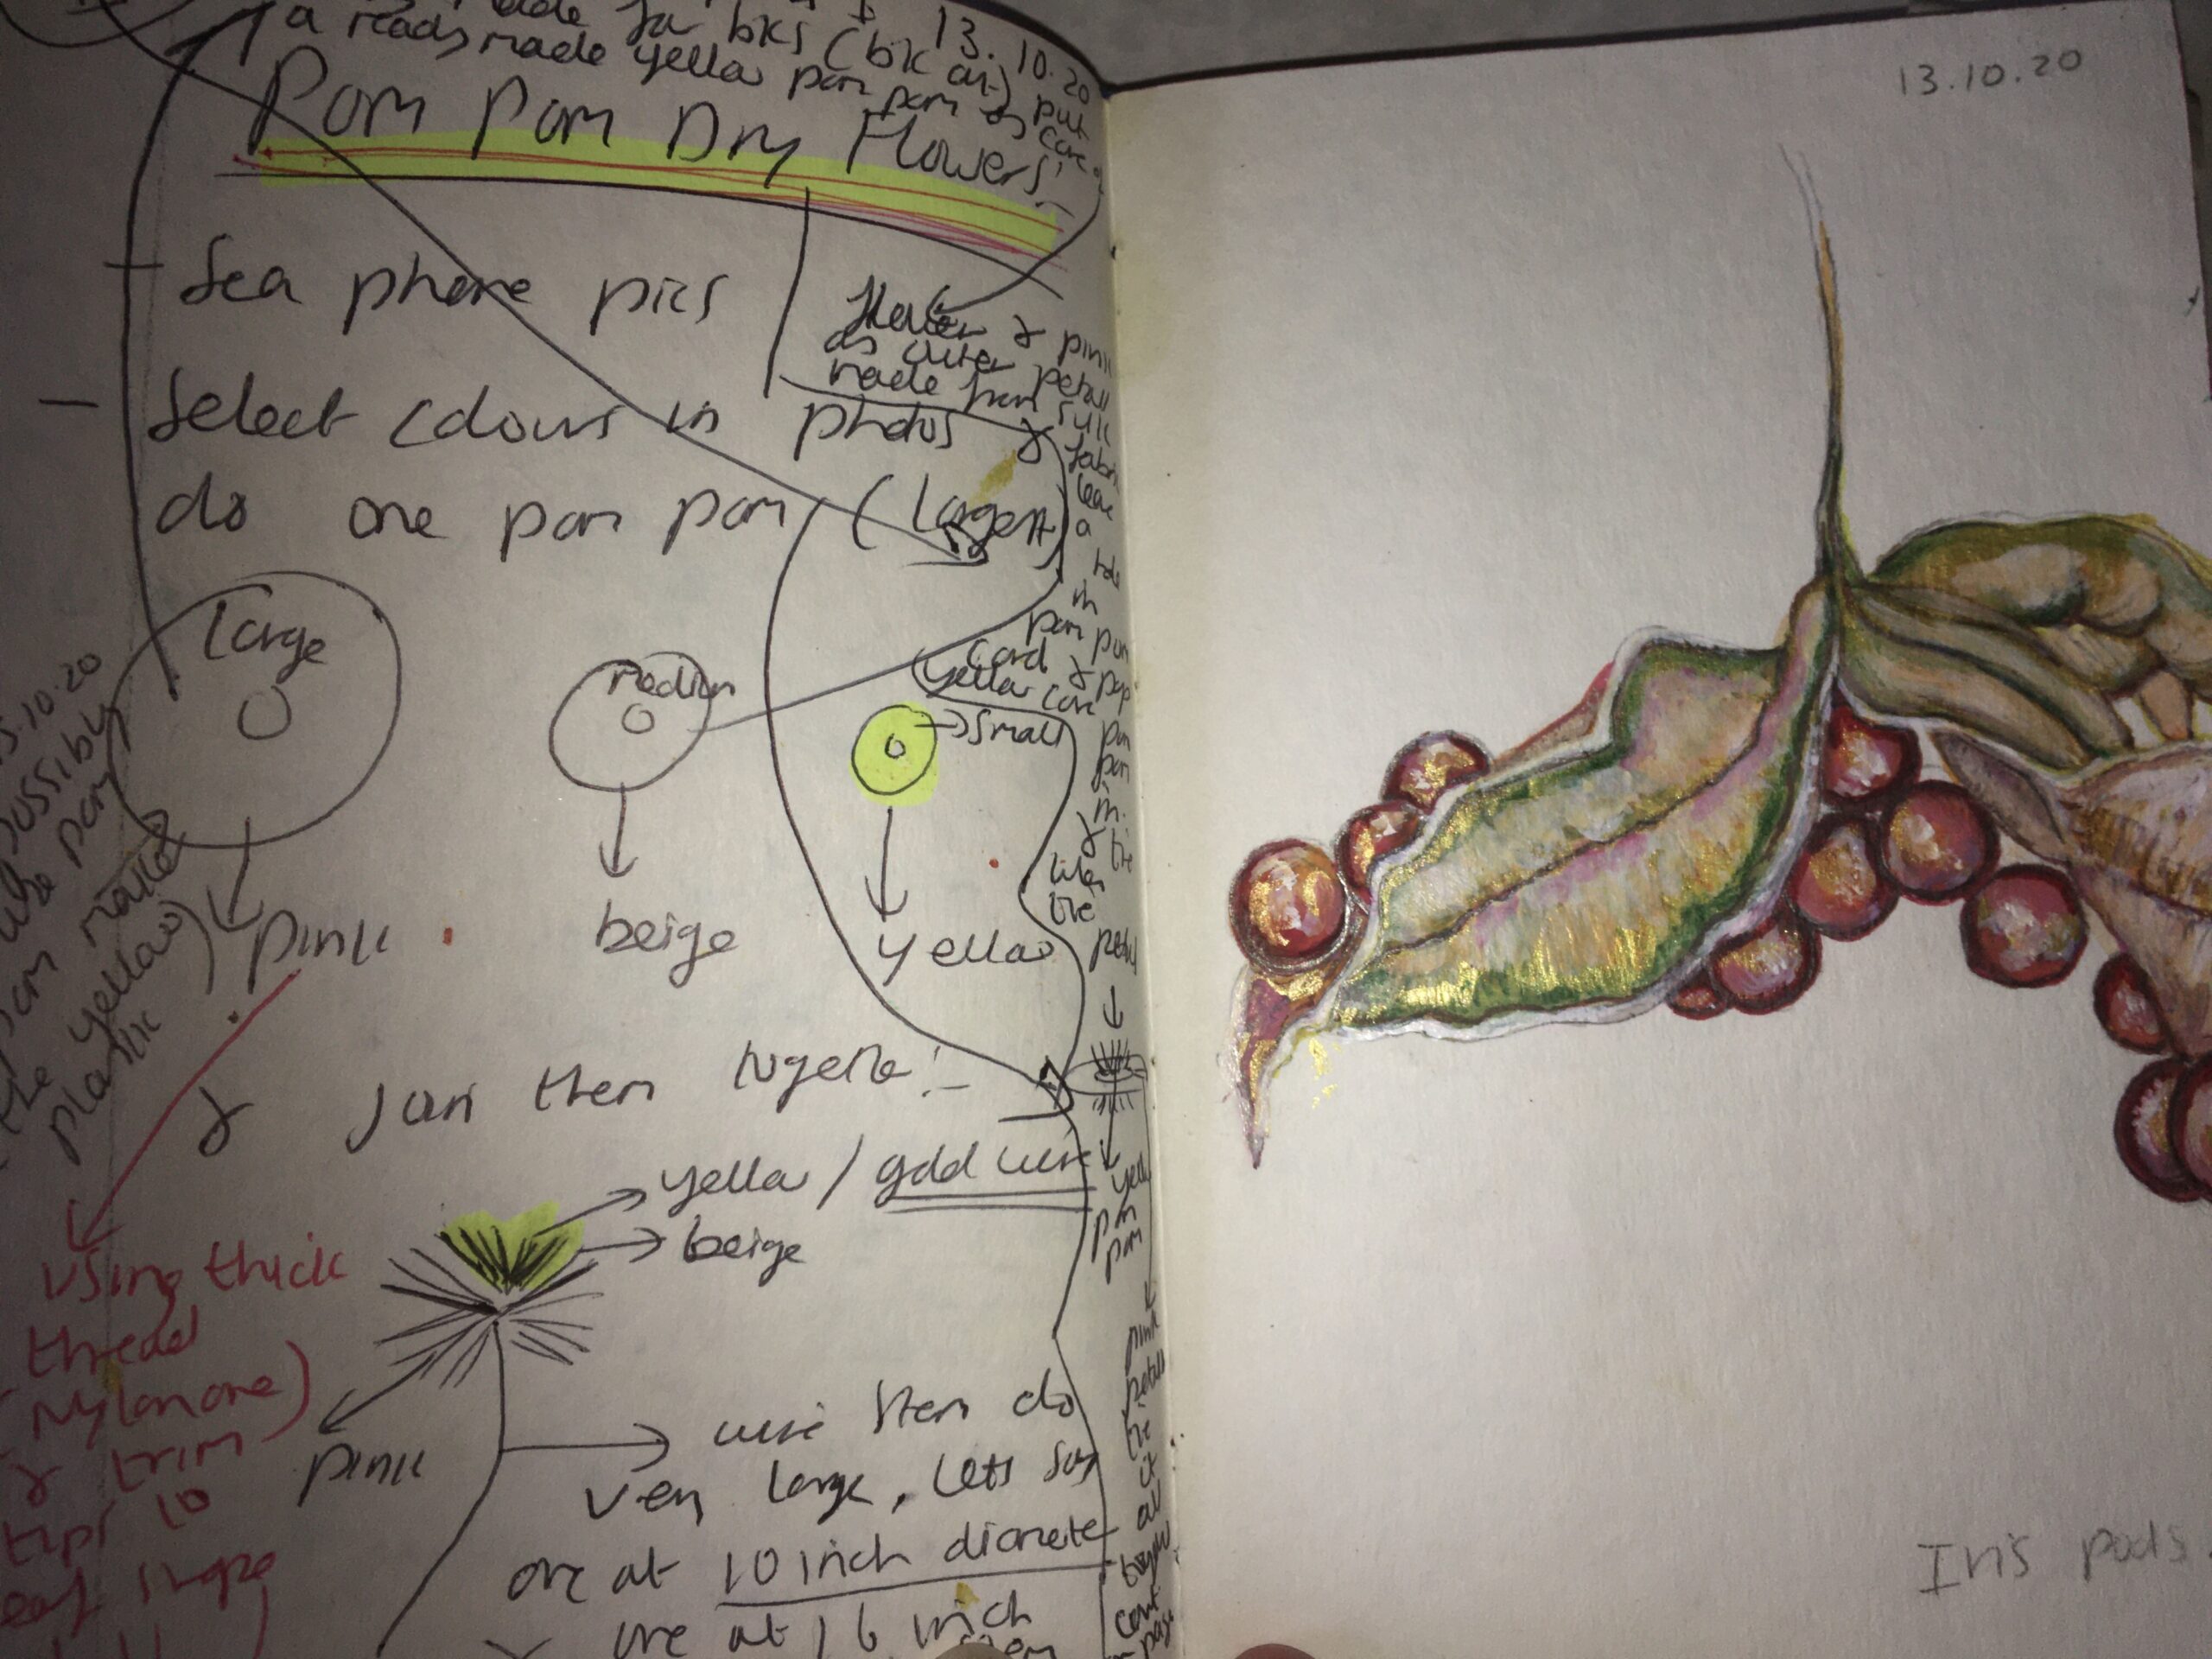 made for bks (bk art) 13.10.20
a ready made yellow pom pom as put core
Pom Pom Dry Flowers!
- See phone pics
- Select colours in photos &
do one pom pom (largest
& pink
as outer petals
made from silk
fabric
leave
a
hole
in
pom pom
card & pop
yellow core
pom
pom
in
&
tie
like
the
petal
yellow
pom
pom
pink
petals
tie
it
all
Large
medium
small
pink
beige
yellow
15.10.20
possibly
use pom
pom maker
(the yellow
plastic
& Join them together!-
yellow / gold wire
beige
pink
using thick
thread
(Nylon one)
& trim
tips to
leaf shape
wire stem do
very large, lets say
one at 10 inch diameter
one at 16 inch
cont
page
13.10.20
Iris pods.